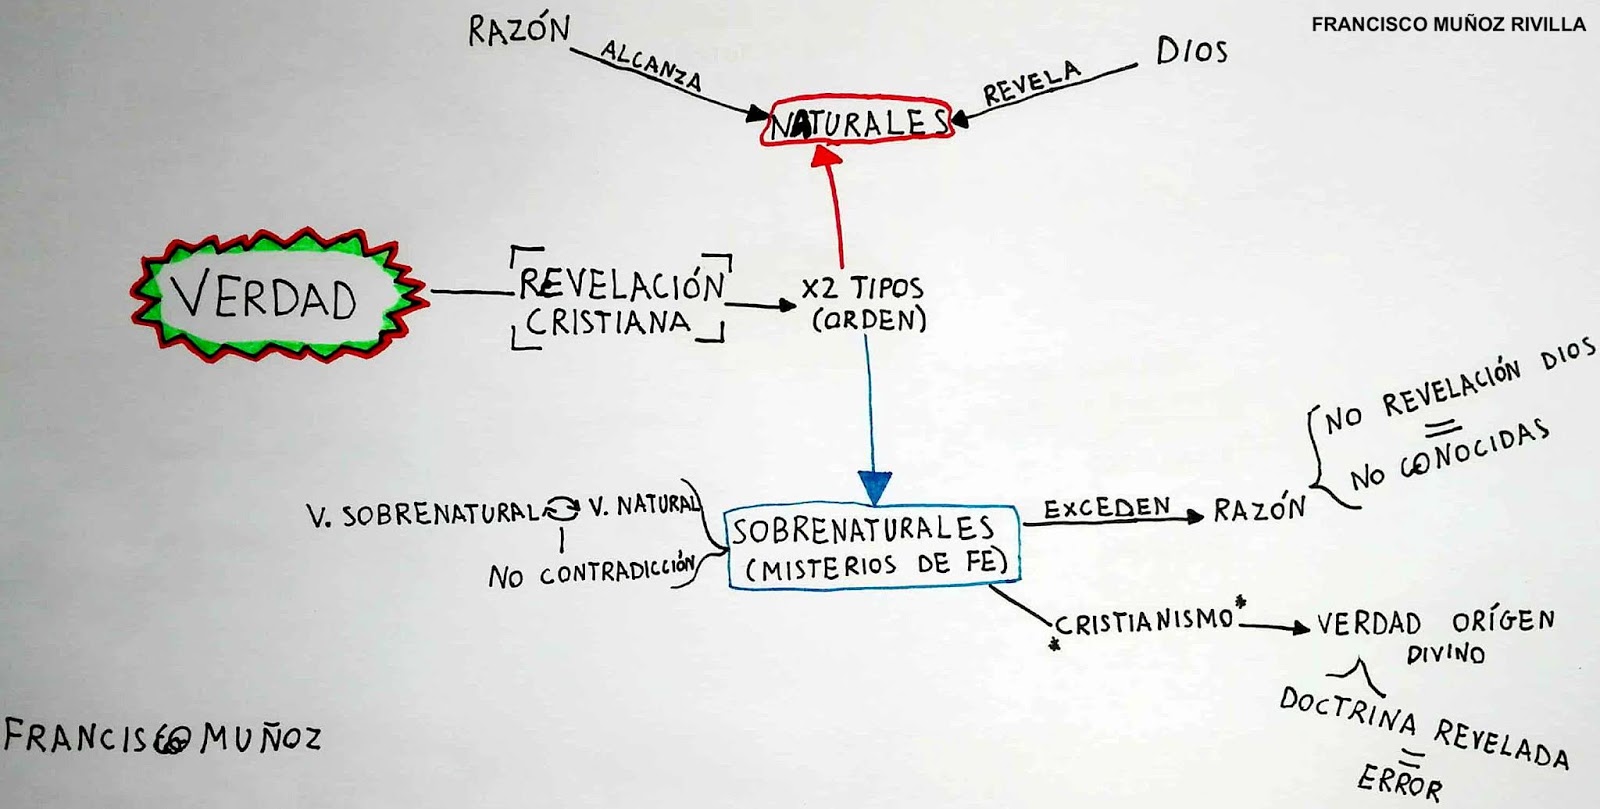 FRANCISCO MUÑOZ RIVILLA
RAZÓN
ALCANZA
DIOS
REVELA
NATURALES
VERDAD
REVELACIÓN
CRISTIANA
X2 TIPOS
(ORDEN)
V. SOBRENATURAL V. NATURAL
NO CONTRADICCIÓN
SOBRENATURALES
(MISTERIOS DE FE)
EXCEDEN
RAZÓN
NO REVELACIÓN DIOS
=
NO CONOCIDAS
*CRISTIANISMO*
VERDAD ORÍGEN
DIVINO
DOCTRINA REVELADA
=
ERROR
FRANCISCO MUÑOZ